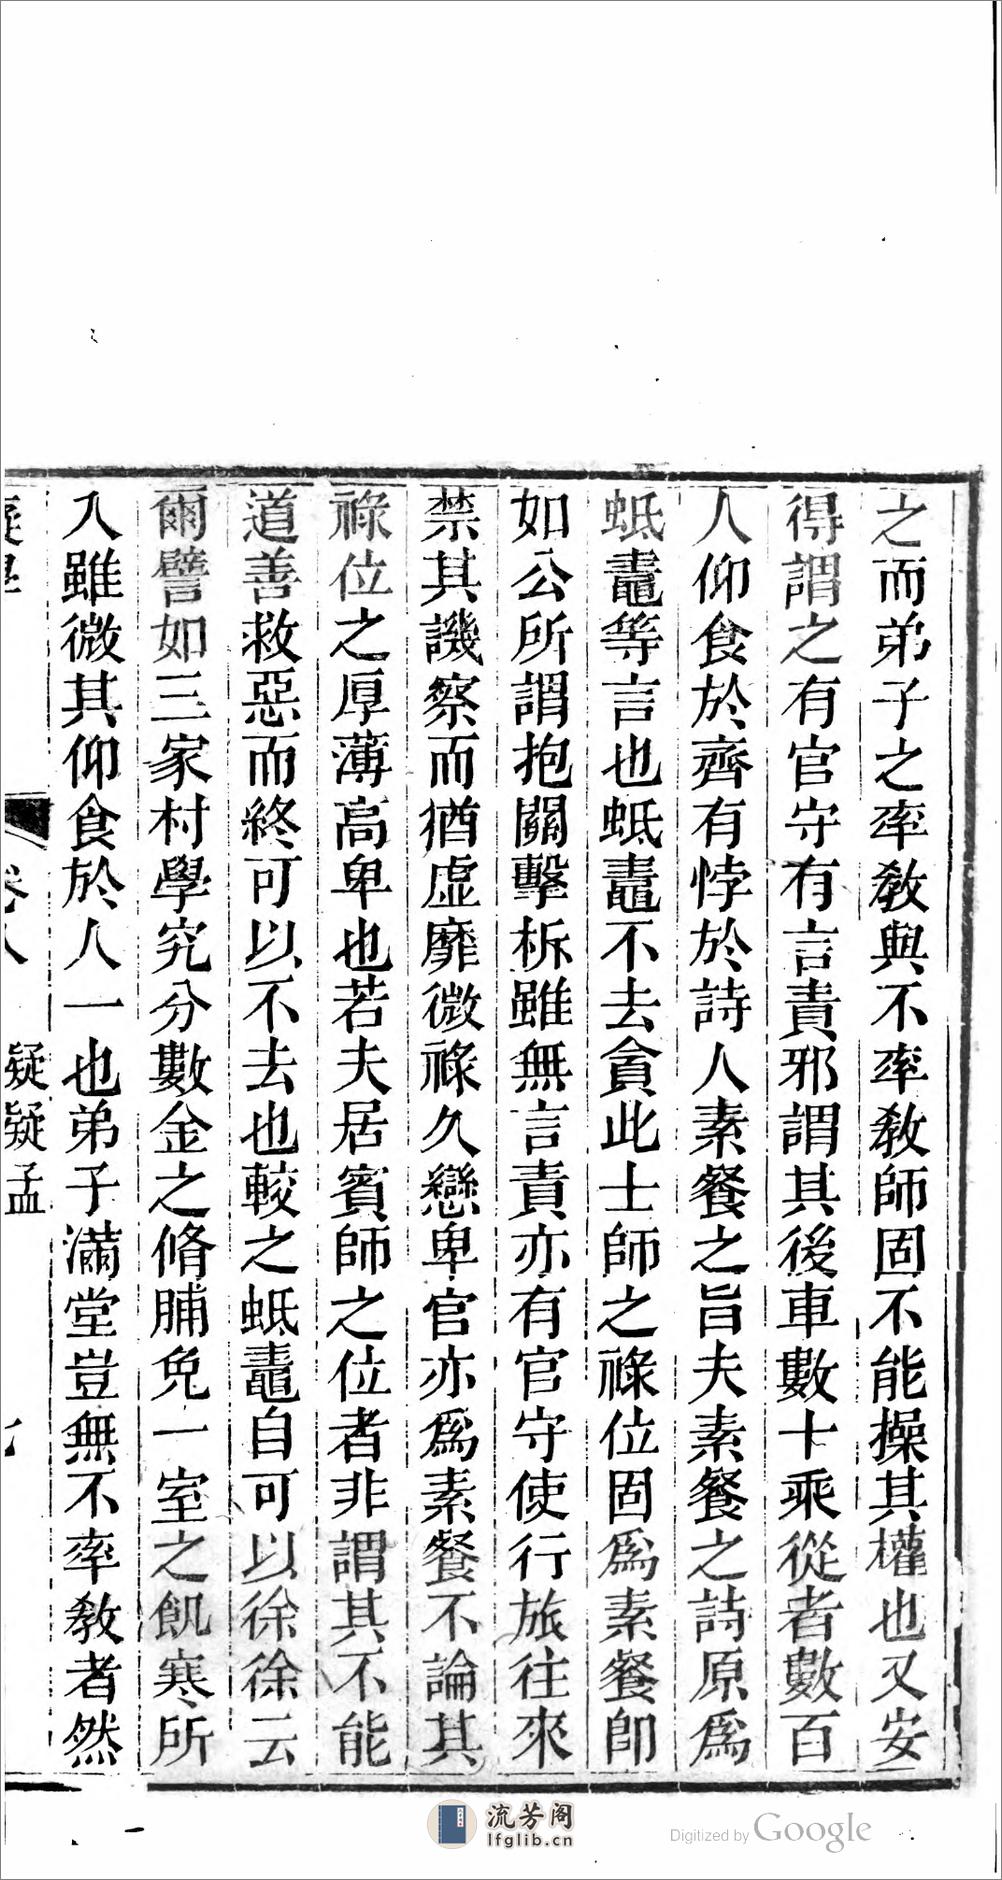 之而弟子之率敎與不率敎師固不能操其權也又安
得謂之有官守有言責邪謂其後車數十乘從者數百
人仰食於齊有悖於詩人素餐之旨夫素餐之詩原爲
蚳鼃等言也蚳鼃不去貪此士師之祿位固爲素餐卽
如公所謂抱關擊柝雖無言責亦有官守使行旅往來
禁其譏察而猶虛靡微祿久戀卑官亦爲素餐不論其
祿位之厚薄高卑也若夫居賓師之位者非謂其不能
道善救惡而終可以不去也較之蚳鼃自可以徐徐云
爾譬如三家村學究分數金之脩脯免一室之飢寒所
入雖微其仰食於人一也弟子滿堂豈無不率敎者然
疑疑孟
流芳阁
lfglib.cn
Digitized by Google